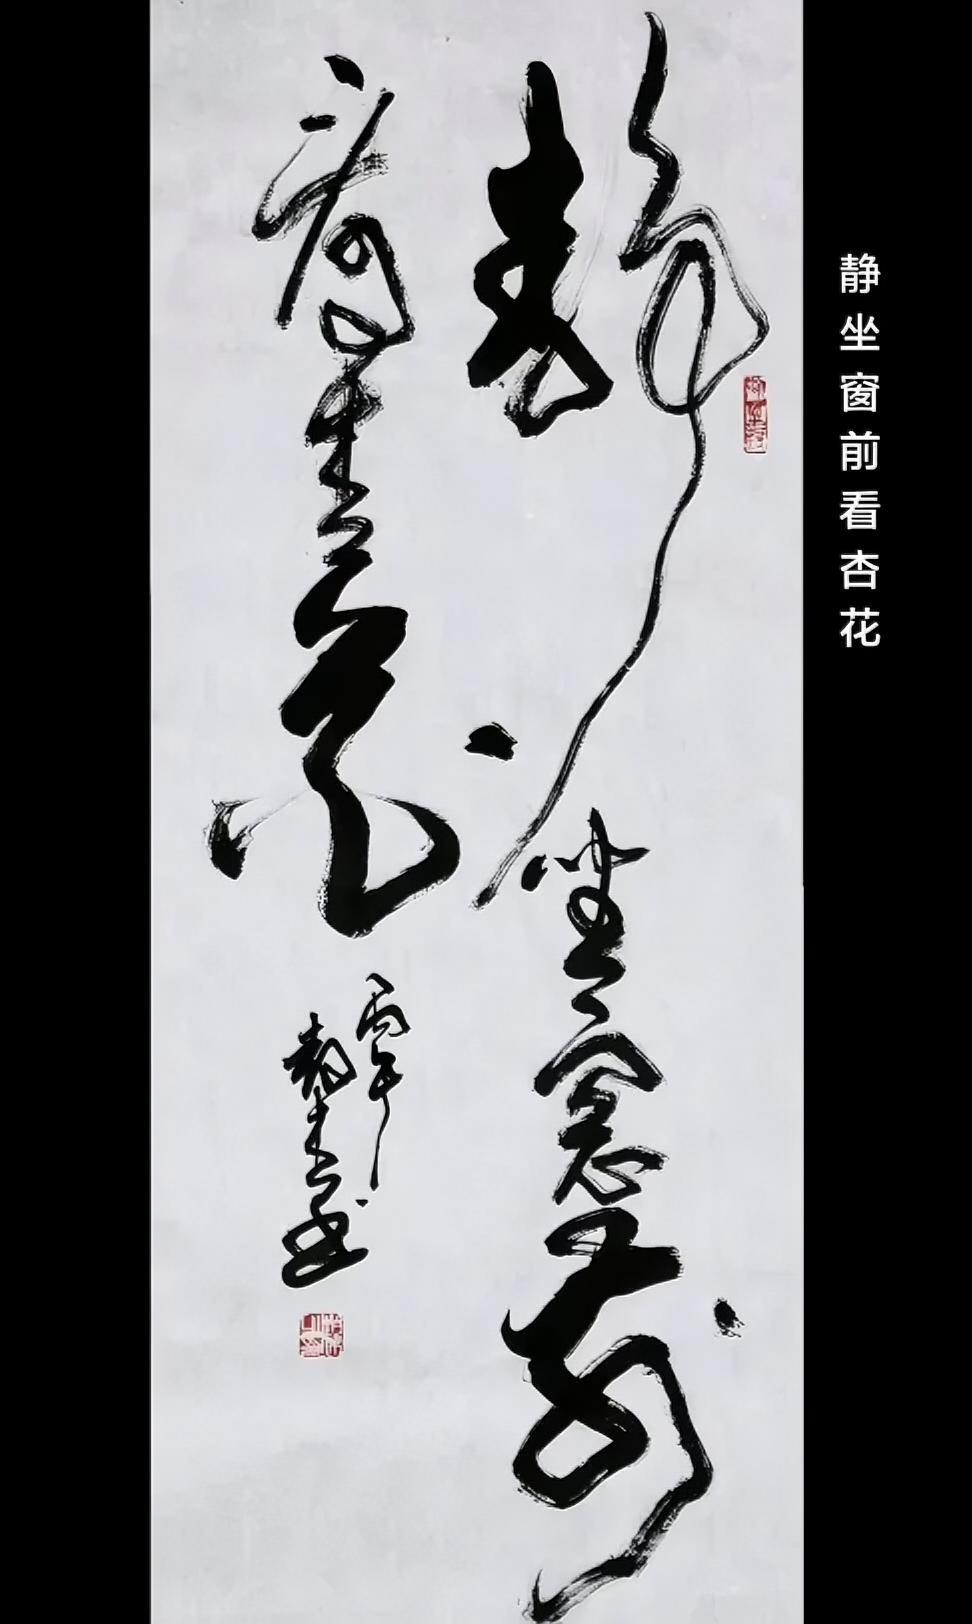 静坐窗前
看杏花
丙午
静坐窗前看杏花